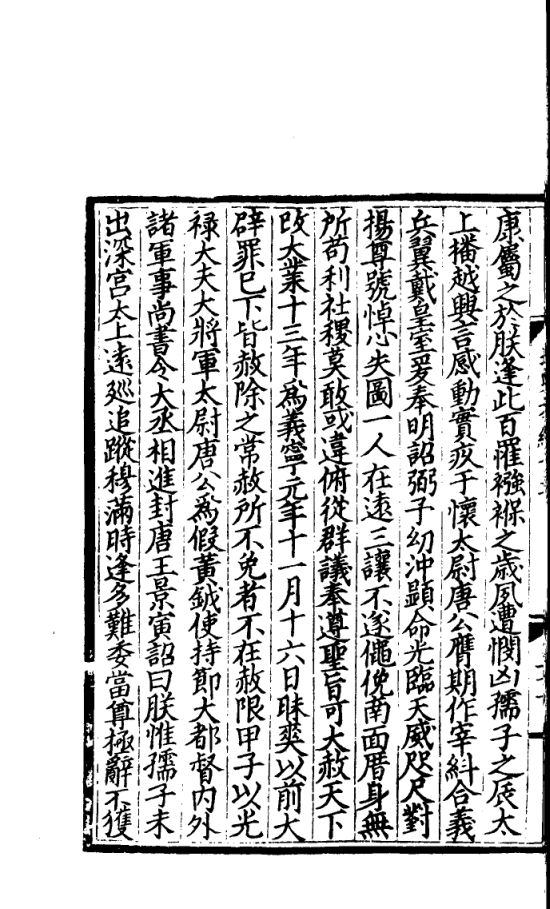 庚屬之於朕逢此百罹襁褓之歲夙遭憫凶孺子之辰太
上播越興言感動實疚于懷太尉唐公膺期作宰糾合義
兵翼戴皇室爰奉明詔弼予幼沖顯命光臨天威咫尺對
揚尊號悼心失圖一人在遠三讓不遂僶俛南面厝身無
所苟利社稷莫敢或違俯從群議奉遵聖旨可大赦天下
改大業十三年爲義寧元年十一月十六日昧爽以前大
辟罪已下皆赦除之常赦所不免者不在赦限甲子以光
祿大夫大將軍太尉唐公爲假黃鉞使持節大都督內外
諸軍事尚書令大丞相進封唐王景寅詔曰朕惟孺子未
出深宮太上遠廵追蹤穆滿時逢多難委當尊極辭不獲